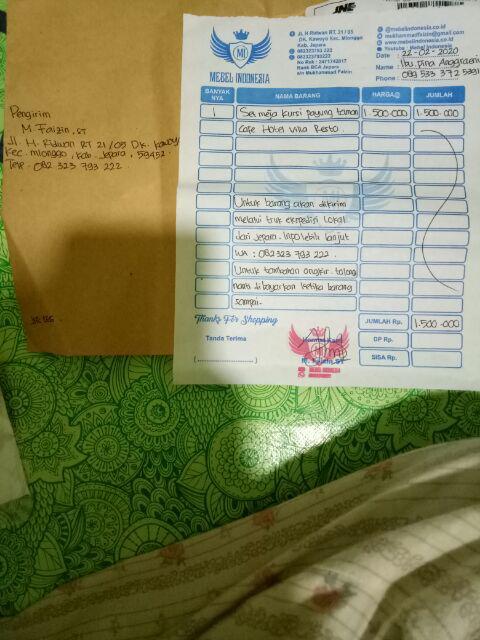 JNE
Jl. H.Ridwan RT. 21 / 05
DK. Kawoyo Kec. Mlonggo
Kab. Jepara
082323793 222
082323793222
No Rek : 2471742017
Bank BCA Jepara
a/n Mukhammad Faizin
@mebelindonesia.co
mukhammadfaizin@gmail.com
www.mebelindonesia.co.id
Youtube : Mebel Indonesia
MI
MEBEL INDONESIA
Date : 22-02-2020
Name : Ibu Dina Anggraeni
Phone :
BANYAK NYA
NAMA BARANG
HARGA@
JUMLAH
1 Set meja kursi payung taman 1.500.000 1.500.000
Cafe Hotel Villa Resto.
Untuk barang akan dikirim
melalui truk ekspedisi lokal
dari Jepara. Inpo lebih lanjut
WA : 082323 793 222.
Untuk tambahan ongkir tolong
nanti dibayarkan ketika barang
sampai.
Thanks For Shopping
JUMLAH Rp. 1.500.000
Tanda Terima
Hormat Kami
DP Rp.
SISA Rp.
(....................)
M. Faizin ST
MEBEL INDONESIA
Pengirim
M. Faizin, ST
Jl. H. Ridwan RT 21/05 Dk. Kawoyo
Kec. Mlonggo, Kab. Jepara, 59452.
Telp. 082 323 793 222